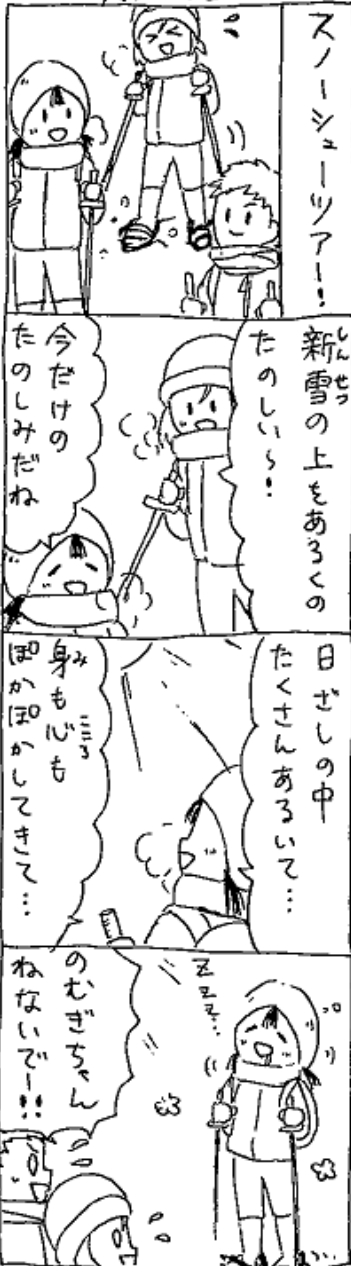 スノーシューツアー!
新雪の上をあるくの
しんせつ
たのしい~!
今だけの
たのしみだね
日ざしの中
たくさんあるいて…
身も心も
み
こころ
ぽかぽかしてきて…
zzz…
のむぎちゃん
ねないでー!!